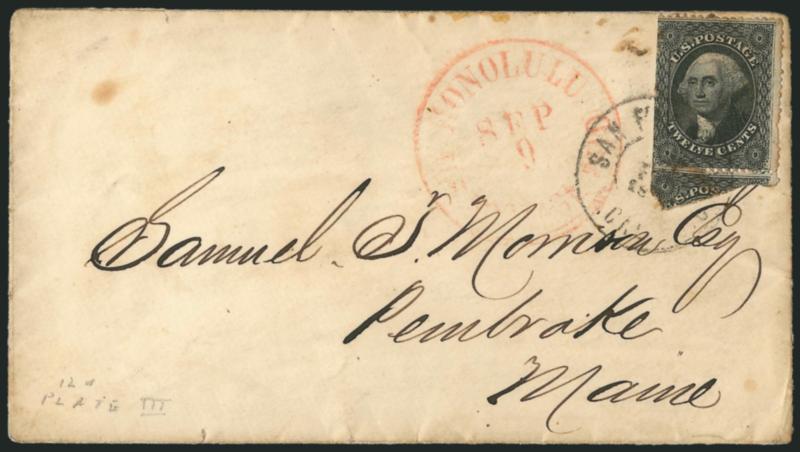 HONOLULU
SEP
9
U.S. POSTAGE
TWELVE CENTS
U.S. POS
SAN
CAL
Samuel S. Morrison Esq
Pembroke
Maine
PLATE III